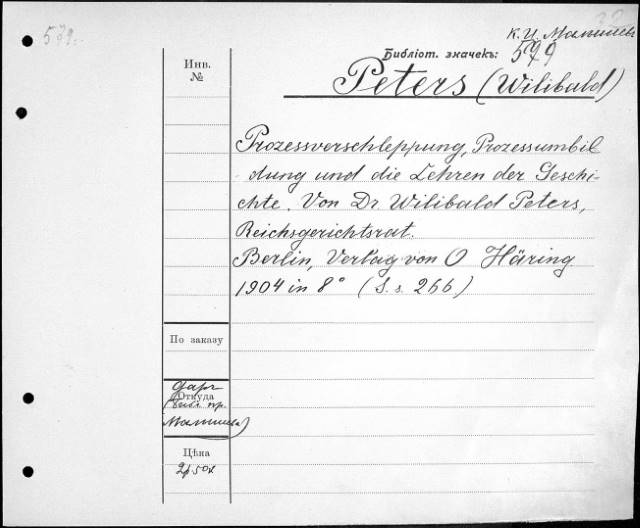 579.
К. И. Малышев
Библіот. значекъ: 579
Инв. №
Peters (Wilibald)
Prozessverschleppung, Prozessumbil
dung und die Lehren der Geschi-
chte. Von Dr. Wilibald Peters,
Reichsgerichtsrat.
Berlin, Verlag von O Häring
1904 in 8° (S. s. 266)
По заказу
Даръ
Откуда
(Библ. пр.
Малышева)
Цѣна
2р.50к